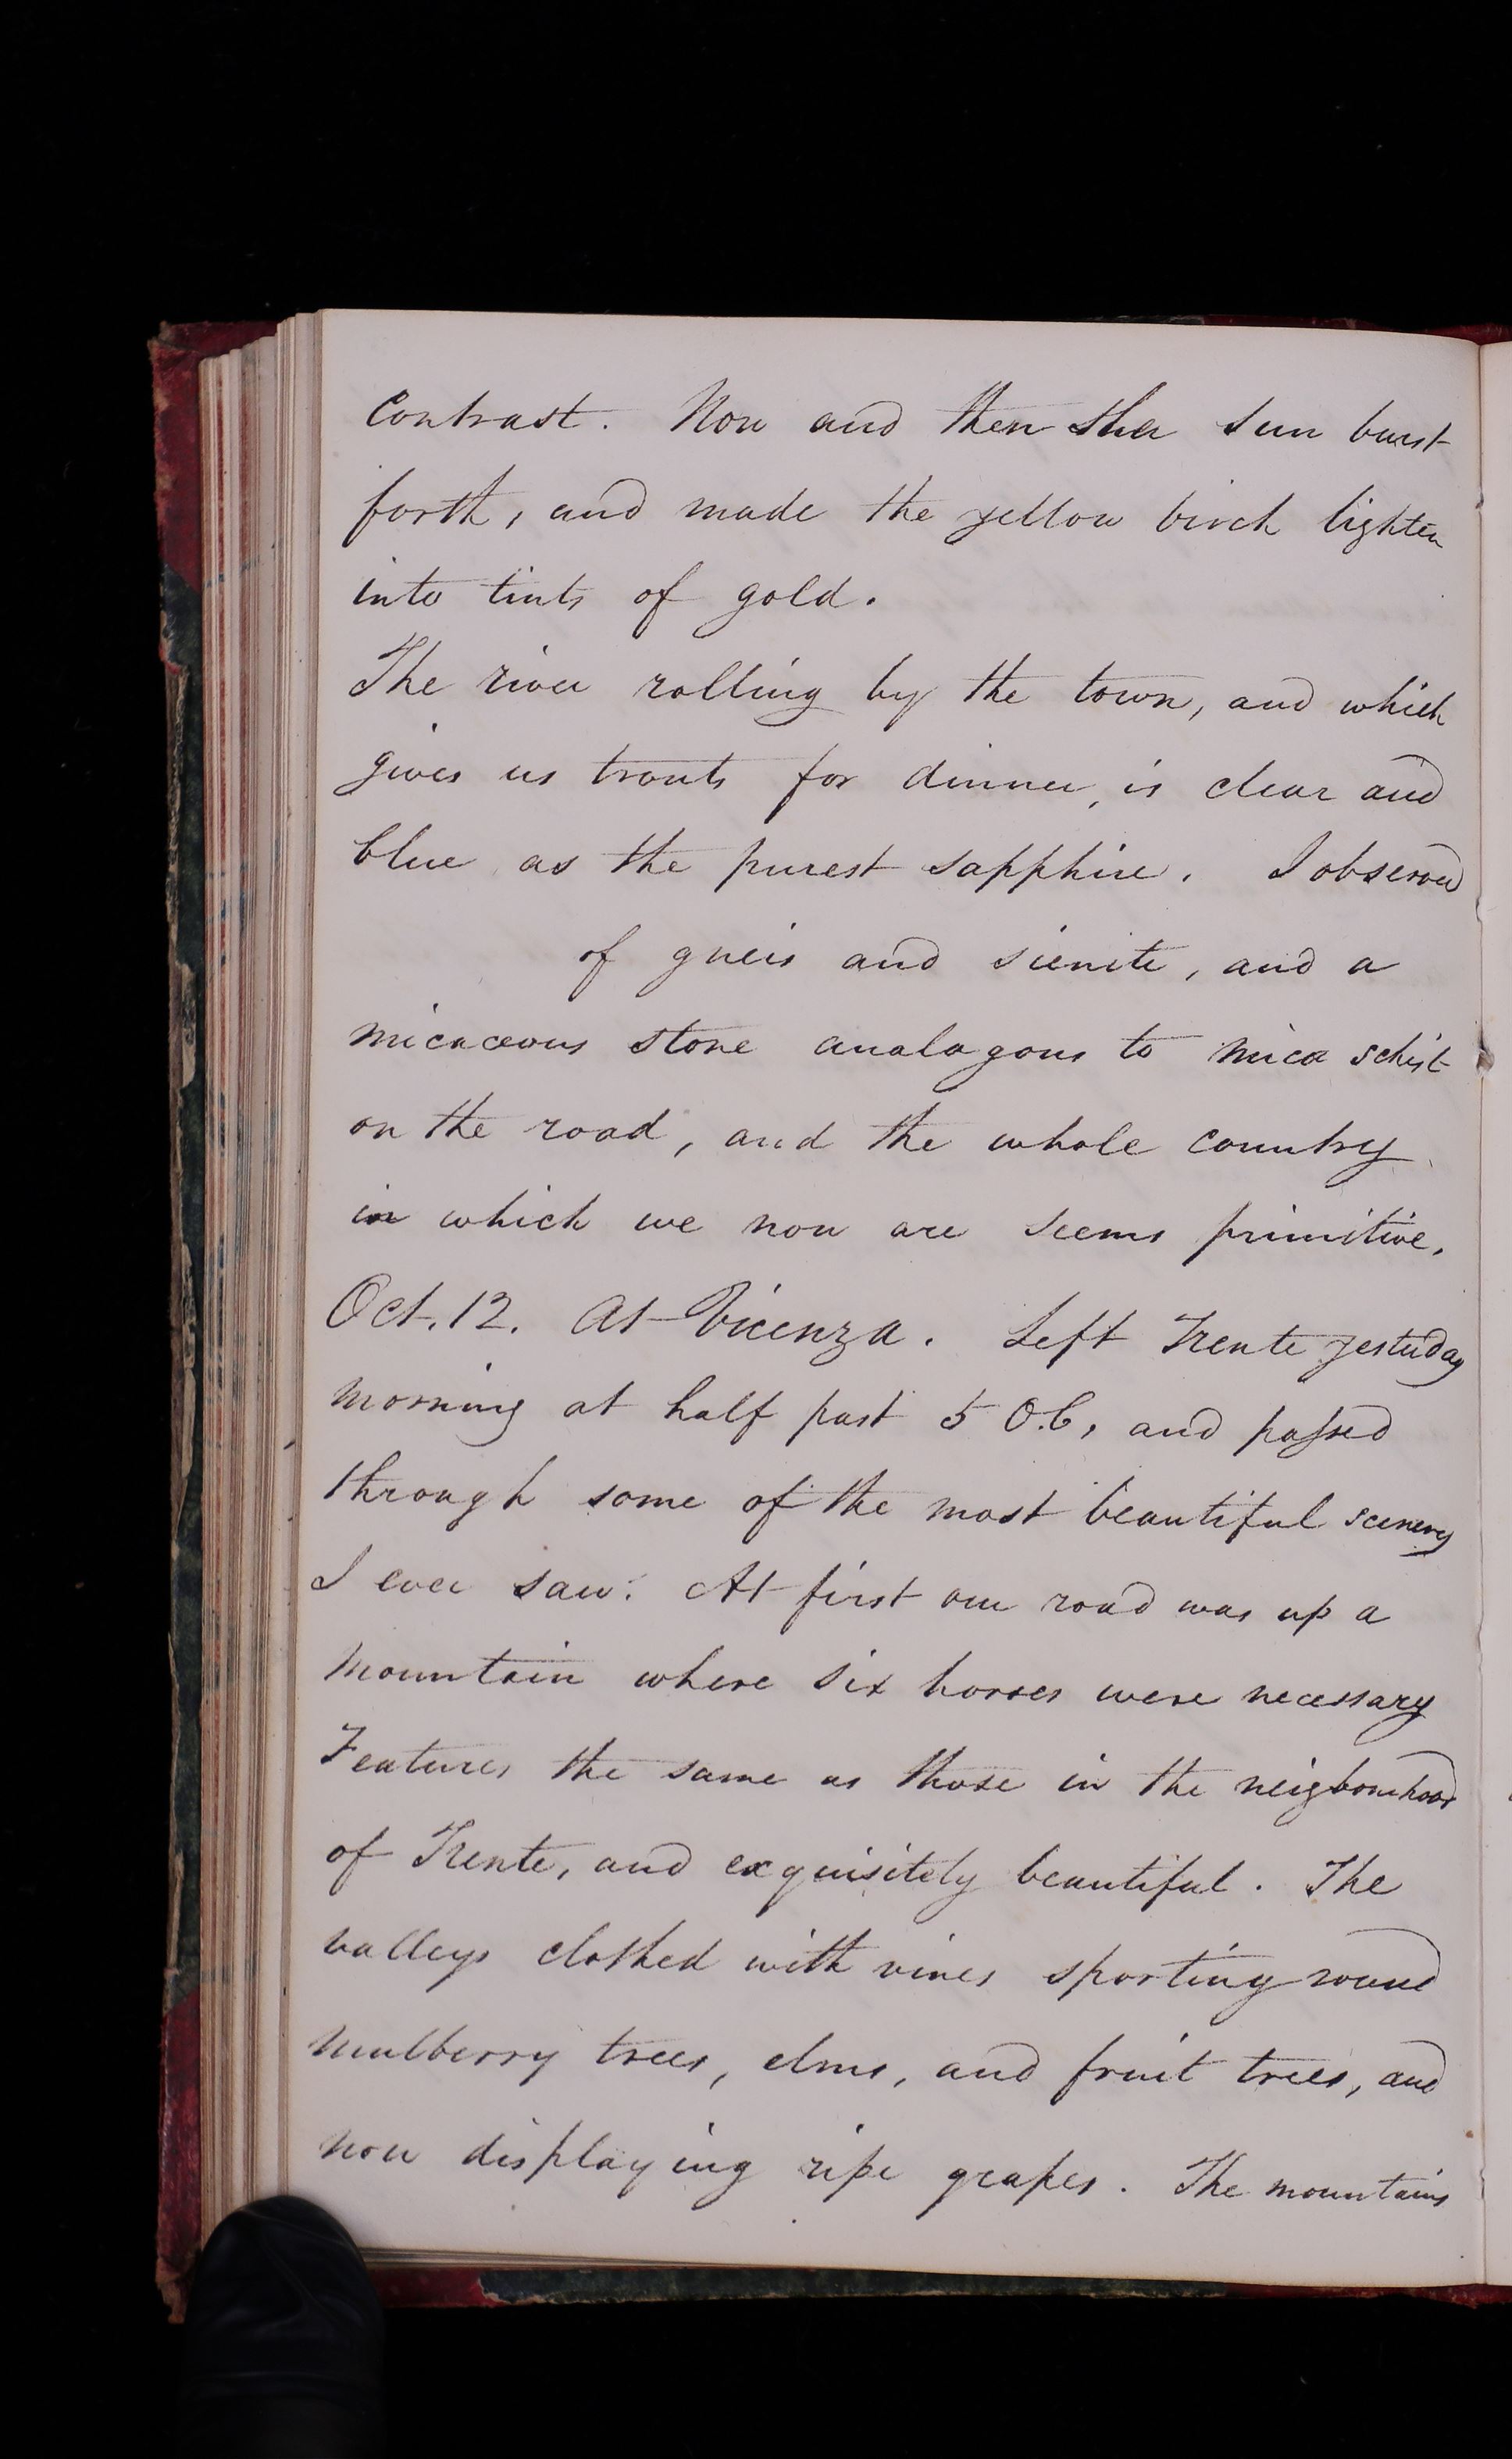 contrast. Now and then the sun burst
forth, and made the yellow birch lighten
into tints of gold.
The river rolling by the town, and which
gives us trouts for dinner, is clear and
blue as the purest sapphire. I observed
of gneis and sienite, and a
micaceous stone analogous to mica schist
on the road, and the whole country
in which we now are seems primitive.
Oct. 12. At Vicenza. Left Trente yesterday
morning at half past 5 O.C, and passed
through some of the most beautiful scenery
I ever saw. At first our road was up a
mountain where six horses were necessary
Features the same as those in the neigbourhood
of Trente, and exquisitely beautiful. The
valleys clothed with vines sporting round
mulberry trees, elms, and fruit trees, and
now displaying ripe grapes. The mountains